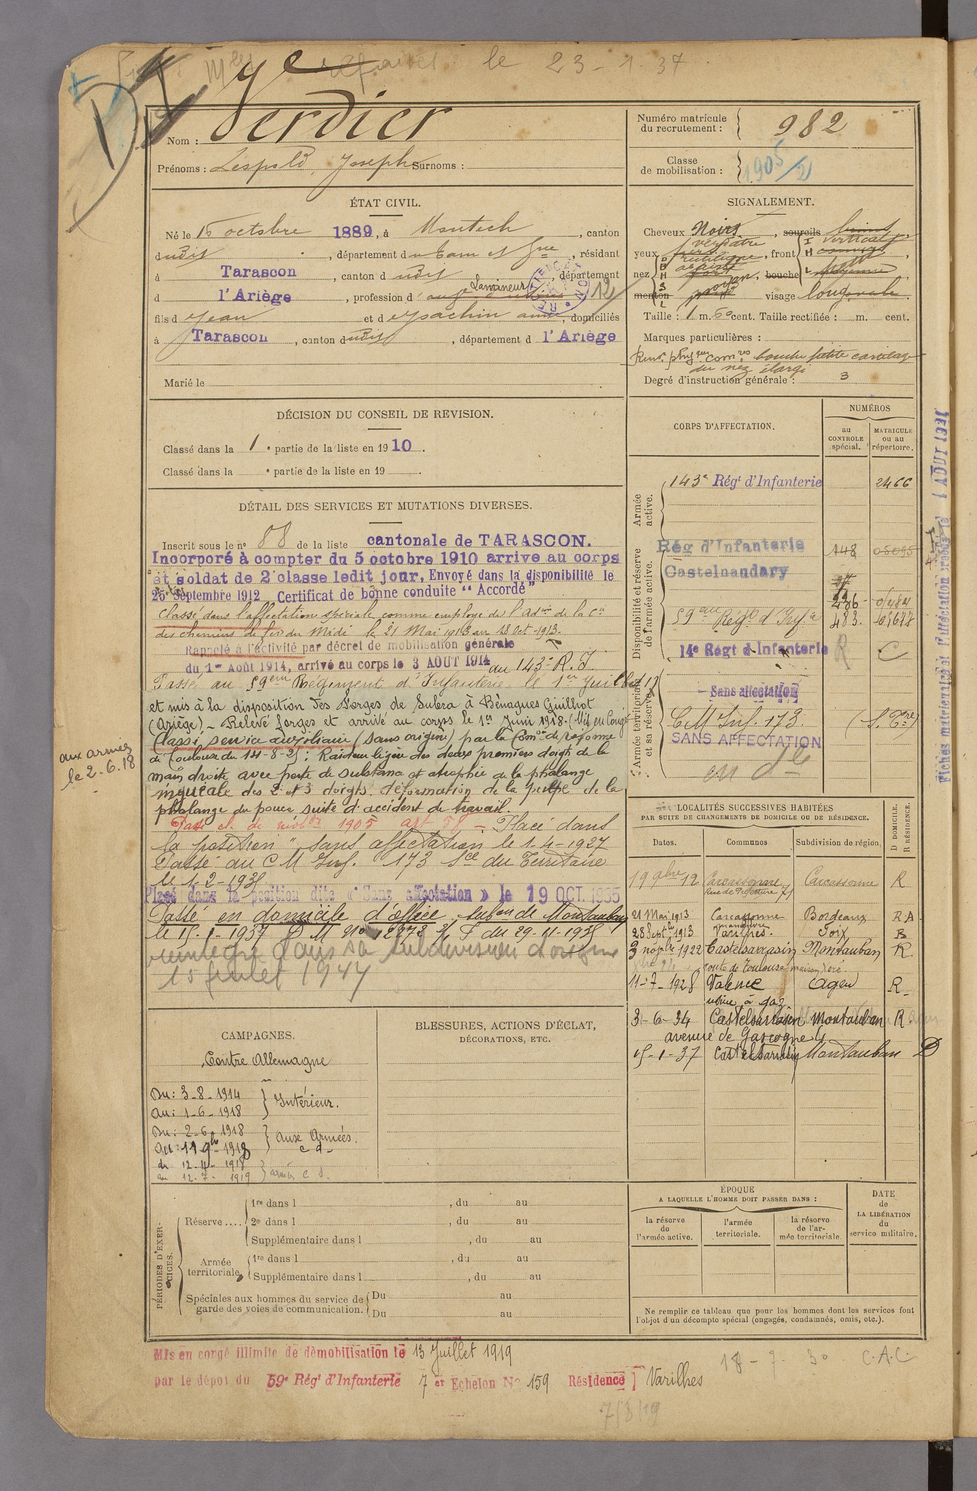 le 23-1-37
Nom : Verdier
Prénoms : Léopold, Joseph Surnoms :
Numéro matricule du recrutement : 982
Classe de mobilisation : 1905/2
ÉTAT CIVIL.
Né le 15 octobre 1889, à Montech, canton
dudit, département du Tarn et Gne, résidant
à Tarascon, canton dudit, département
d l'Ariège, profession d
Lamineur
fils d Jean et d, domiciliés
à Tarascon, canton dudit, département d l'Ariège
Marié le
SIGNALEMENT.
Cheveux Noirs, sourcils
yeux, front
nez, bouche
menton, visage
Taille : 1 m. cent. Taille rectifiée : m. cent.
Marques particulières :
Degré d'instruction générale : 3
DÉCISION DU CONSEIL DE REVISION.
Classé dans la 1e partie de la liste en 1910.
Classé dans la e partie de la liste en 19 .
DÉTAIL DES SERVICES ET MUTATIONS DIVERSES.
Inscrit sous le n° 88 de la liste cantonale de TARASCON.
Incorporé à compter du 5 octobre 1910 arrive au corps
et soldat de 2e classe ledit jour. Envoyé dans la disponibilité le
25 Septembre 1912 Certificat de bonne conduite "Accordé"
Classé dans l'affectation spéciale comme employé de l'Adon de la Cie
des chemins de fer du Midi le 21 Mai 1913 au 28 Oct 1913.
Rappelé à l'activité par décret de mobilisation générale
du 1er Août 1914, arrivé au corps le 3 AOUT 1914 au 143e R.I.
Passé au 59ème Régiment d'Infanterie le 1er Juillet 17
et mis à la disposition des Forges de Sabra à Bénagues Guilhot
(Ariège) - Relevé Forges et arrivé au corps le 1er Juin 1918.
Classé service auxiliaire (sans origine) par la Comon de réforme
de Toulouse du 14-8-25 : Raideur légère des deux premiers doigts de la
main droite avec perte de substance et atrophie de la phalange
unguéale des 2e et 3 doigts. déformation de la pulpe de la
phalange du pouce suite d'accident de travail.
Passé cl. de mobon 1905 art 58 - Placé dans
la position "sans affectation le 1-4-1927
Passé au C M Inf. 173 Son du Territoire
le 1-2-1935
Placé dans la position dite « Sans affectation » le 19 OCT. 1935
Passé en domicile d'office, Subon de Montauban
le 15-1-1937
réintégré dans sa subdivision d'origine
15 juillet 1944
aux armées
le 2.6.18
CORPS D'AFFECTATION.
NUMÉROS
au CONTROLE spécial.
MATRICULE ou au répertoire.
Armée active.
143e Régt d'Infanterie 2466
Disponibilité et réserve de l'armée active.
Rég d'Infanterie
Castelnaudary
148
236
59ème Régt d'Infie 483
14e Régt d'Infanterie R C
Armée territoriale et sa réserve.
Sans affectation
C M Inf. 173
SANS AFFECTATION
LOCALITÉS SUCCESSIVES HABITÉES
PAR SUITE DE CHANGEMENTS DE DOMICILE OU DE RÉSIDENCE.
Dates. Communes Subdivision de région.
D DOMICILE. R RÉSIDENCE.
19 9bre 12 Carcassonne Carcassonne R
21 Mai 1913 Carcassonne Bordeaux R A
1913 Foix R
3 1922 Castelsarrasin Montauban R.
route de Toulouse
11-7-1928 Valence Agen R
usine à gaz
3-6-34 Castelsarrasin Montauban R.
avenue de Gascogne
15-1-37 Castelsarrasin Montauban D
CAMPAGNES.
Contre Allemagne
Du : 3-8-1914
au : 1-6-1918 } Intérieur.
Du : 2-6-1918
au : 11 9bre 1918 } Aux Armées.
du 12-11-1918
au 12-7-1919
BLESSURES, ACTIONS D'ÉCLAT,
DÉCORATIONS, ETC.
PÉRIODES D'EXERCICES.
Réserve.... 1re dans l , du au
2e dans l , du au
Supplémentaire dans l , du au
Armée territoriale. 1re dans l , du au
Supplémentaire dans l , du au
Spéciales aux hommes du service de garde des voies de communication. Du au
Du au
ÉPOQUE
A LAQUELLE L'HOMME DOIT PASSER DANS :
la réserve de l'armée active.
l'armée territoriale.
la réserve de l'armée territoriale.
DATE de LA LIBÉRATION du service militaire.
Ne remplir ce tableau que pour les hommes dont les services font
l'objet d'un décompte spécial (engagés, condamnés, omis, etc.).
Mis en congé illimité de démobilisation le 13 Juillet 1919
par le dépôt du 59e Régt d'Infanterie 7e Echelon No 159 Résidence Varilhes
18-7-30 C.A.C.
7/8/19